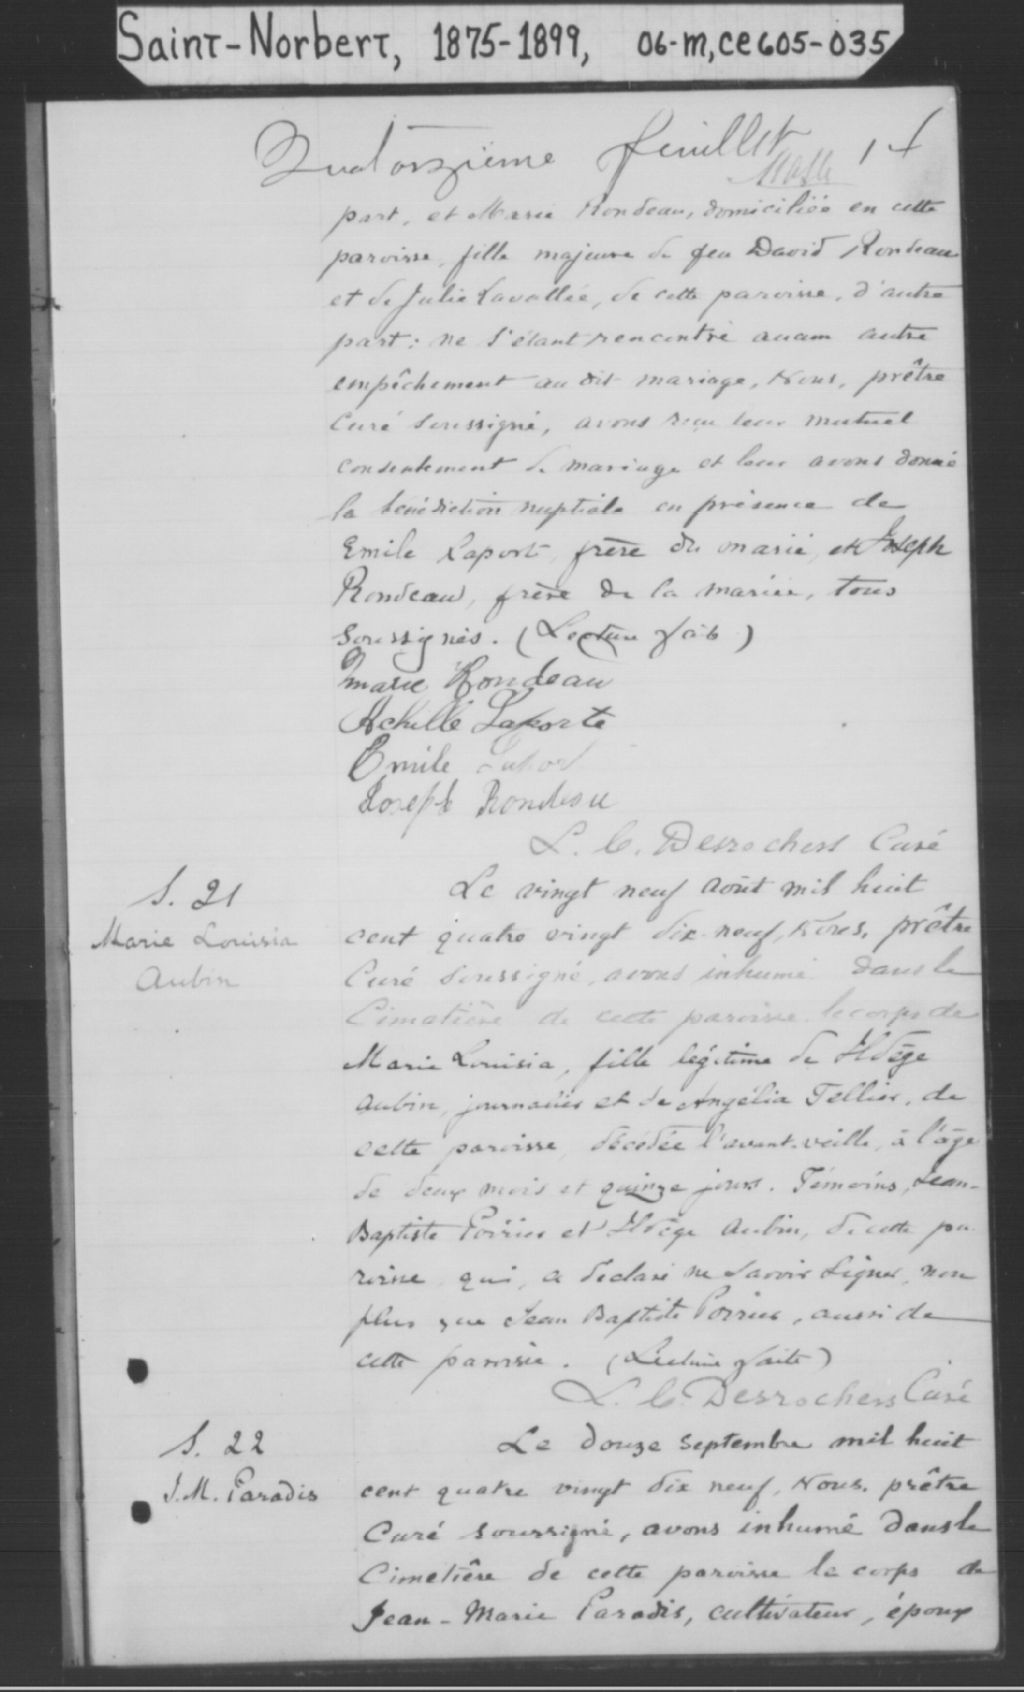 Saint-Norbert, 1875-1899, 06-M, CE605-035
Quatorzième feuillet 14
part, et Marie Rondeau, domiciliée en cette
paroisse, fille majeure de feu David Rondeau
et de Julie Lavallée, de cette paroisse, d'autre
part: ne s'étant rencontré aucun autre
empêchement au dit mariage, Nous, prêtre
Curé soussigné, avons reçu leur mutuel
consentement de mariage et leur avons donné
la bénédiction nuptiale en présence de
Emile Laport, frère du marié, et Joseph
Rondeau, frère de la mariée, tous
soussignés. (Lecture faite)
Marie Rondeau
Achille Laporte
Emile Laport
Joseph Rondeau
L. C. Desrochers Curé
S. 21
Marie Louisia
Aubin
Le vingt neuf août mil huit
cent quatre vingt dix-neuf, Nous, prêtre
Curé soussigné, avons inhumé dans le
Cimetière de cette paroisse le corps de
Marie Louisia, fille légitime de
Aubin, journalier et de Angélia Tellier, de
cette paroisse, décédée l'avant-veille, à l'âge
de deux mois et quinze jours. Témoins, Jean-
Baptiste Poirier et Aubin, de cette pa
roisse qui a déclaré ne savoir signer, non
plus que Jean Baptiste Poirier, aussi de
cette paroisse. (Lecture faite)
L. C. Desrochers Curé
S. 22
J.M. Paradis
Le douze septembre mil huit
cent quatre vingt dix neuf, Nous, prêtre
Curé soussigné, avons inhumé dans le
Cimetière de cette paroisse le corps de
Jean-Marie Paradis, cultivateur, époux